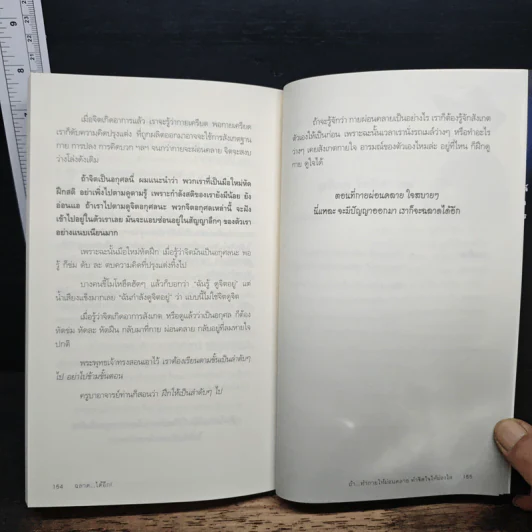 เมื่อจิตเกิดอาการแล้ว เราจะรู้ว่ากายเครียด พอกายเครียด
เราก็ดับความคิดปรุงแต่ง ที่ถูกผลิตออกมาอาจจะใช้การสังเกตฐาน
กาย การปลง การคิดบวก ฯลฯ จนกว่ากายจะผ่อนคลาย จิตจะสงบ
ว่างโล่งดังเดิม
ถ้าจิตเป็นอกุศลนี้ ผมแนะนำว่า พวกเราที่เป็นมือใหม่หัด
ฝึกสติ อย่าเพิ่งไปตามดูตามรู้ เพราะกำลังสติของเรายังมีน้อย ยัง
อ่อนแอ ถ้าเราไปตามดูจิตอกุศลนะ พวกจิตอกุศลเหล่านี้ จะฝัง
เข้าไปอยู่ในตัวเราเลย มันจะแอบซ่อนอยู่ในสัญญาลึกๆ ของตัวเรา
อย่างแนบเนียนมาก
เพราะฉะนั้นมือใหม่หัดฝึก เมื่อรู้ว่าจิตมันเป็นอกุศลนะ พอ
รู้ ก็ข่ม ดับ ละ ตบความคิดที่ปรุงแต่งทิ้งไป
บางคนขี้โมโหฮึดฮัดๆ แล้วก็บอกว่า “ฉันรู้ ดูจิตอยู่” แต่
น้ำเสียงแข็งมากเลย “ฉันกำลังดูจิตอยู่” ว่า แบบนี้ไม่ใช่จิตดูจิต
เมื่อรู้ว่าจิตเกิดอาการสังเกต หรือดูแล้วว่าเป็นอกุศล ก็ต้อง
หัดข่ม หัดละ หัดฝืน กลับมาที่กาย ผ่อนคลาย กลับอยู่ที่ลมหายใจ
ปกติ
พระพุทธเจ้าทรงสอนเอาไว้ เราต้องเรียนตามขั้นเป็นลำดับๆ
ไป อย่าไปข้ามขั้นตอน
ครูบาอาจารย์ท่านก็สอนว่า ฝึกให้เป็นลำดับๆ ไป
184 ฉลาด...ได้อีก!
ถ้าจะรู้จักว่า กายผ่อนคลายเป็นอย่างไร เราก็ต้องรู้จักสังเกต
ตัวเองให้เป็นก่อน เพราะฉะนั้นเวลาเรานั่งรถเมล์ว่างๆ หรือทำอะไร
ว่างๆ เคยสังเกตกายใจ อารมณ์ของตัวเองไหมล่ะ อยู่ที่ไหน ก็ฝึกดู
กาย ดูใจได้
ตอนที่กายผ่อนคลาย ใจสบายๆ
นี่แหละ จะมีปัญญาออกมา เราก็จะฉลาดได้อีก
ทำกายให้ผ่อนคลาย ทำจิตใจให้ผ่องใส 185